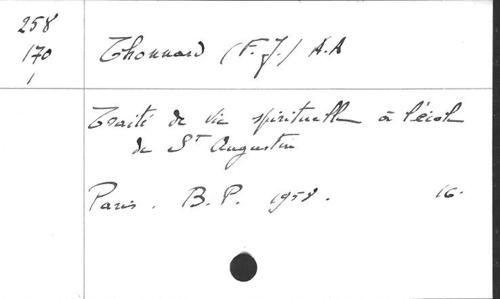 258
170
1
Thonnard (F.J.) A.A
Traité de vie spirituelle à l'école
de St Augustin
Paris. B.P. 1958. 16.